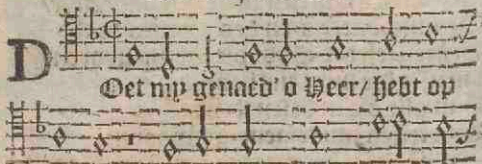 DOet my genaed' o Heer/ hebt op